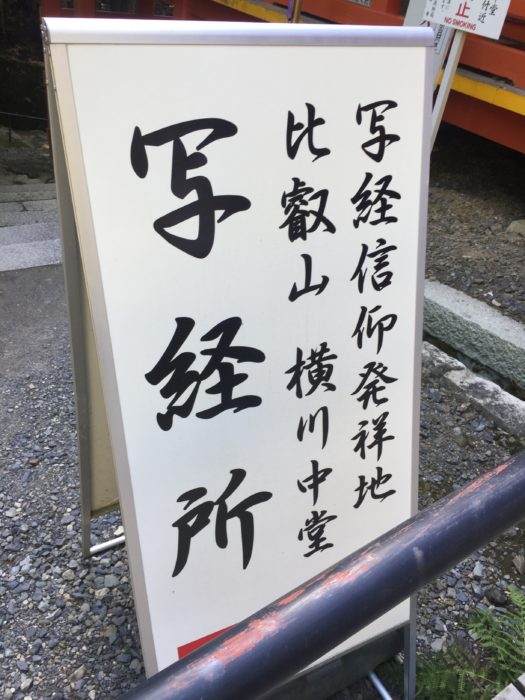 写経信仰発祥地
比叡山 横川中堂
写経所
止
NO SMOKING